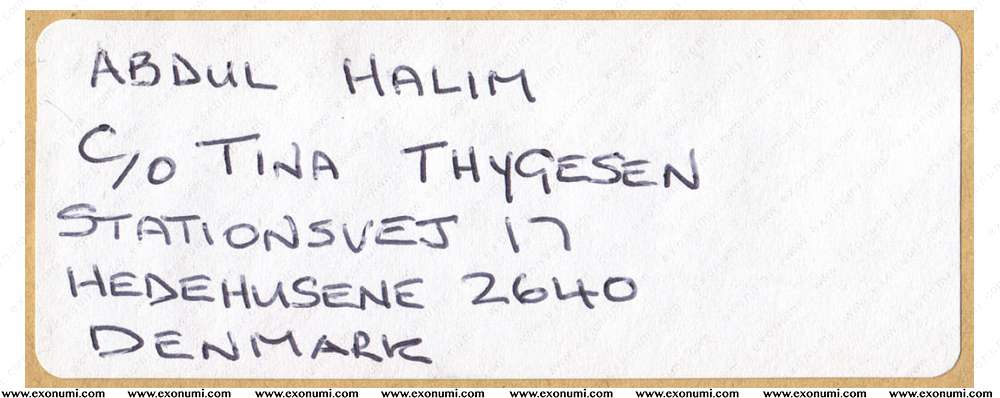 ABDUL HALIM
C/O TINA THYGESEN
STATIONSVEJ 17
HEDEHUSENE 2640
DENMARK
www.exonumi.com www.exonumi.com www.exonumi.com www.exonumi.com www.exonumi.com www.exonumi.com www.exonumi.com www.exonumi.com